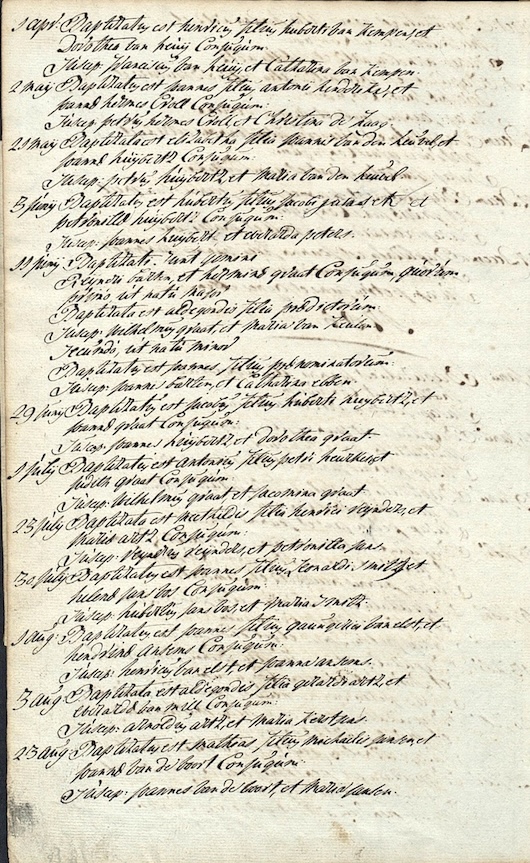 1 apr: Baptizatus est henricus filius huberti van Kempen, et
Dorothea van heuij Conjugum:
Suscep: franciscus van heuij, et Catharina van Kempen.
2 maij Baptizatus est joannes filius antonii et
joannæ hermes Croll Conjugum:
Suscep: petrus hermes Croll et Christina de haas
21 maij Baptizata est elizabetha filia joannis van den heuvel, et
joannæ huijbertz Conjugum:
Suscep: petrus huijbertz, et maria van den heuvel
5 junij Baptizatus est hubertus filius jacobi et
petronillæ huijbertz Conjugum:
Suscep: joannes huijbertz et everarda peters.
11 junij Baptizati sunt gemini
Reijneri et herminæ graat Conjugum, quorum
primo ut natu major
Baptizata est aldegondis filia prædictorum:
Suscep: Wilhelmus graat, et maria van
Secundo, ut natu minor
Baptizatus est joannes filius prænominatorum:
Suscep: joannes et Catharina ebben.
29 junij Baptizatus est jacobus filius huberti huijbertz, et
joannæ graat Conjugum:
Suscep: joannes huijbertz, et dorothea graat.
1 julij Baptizatus est antonius filius petri et
judith graat Conjugum
Suscep: Wilhelmus graat, et jacomina graat
23 julij Baptizata est mechtildis filia henrici reijnders, et
mariæ artz Conjugum:
Suscep: reijnders, et petronilla jans.
30 julij Baptizatus est joannes filius leonardi smitz, et
helenæ jans bos Conjugum:
Suscep: hubertus jans bos, et maria smitz.
1 aug: Baptizatus est joannes filius van elst, et
hendrinæ ansems Conjugum:
Suscep: henricus van elst, et joanna ansems.
3 aug Baptizata est aldegondis filia gerardi artz, et
everardæ van mill Conjugum:
Suscep: arnoldus artz, et maria
23 aug: Baptizatus est mathias filius michaelis jansen, et
joannæ van de voort Conjugum:
Suscep: joannes van de voort, et maria jansen.